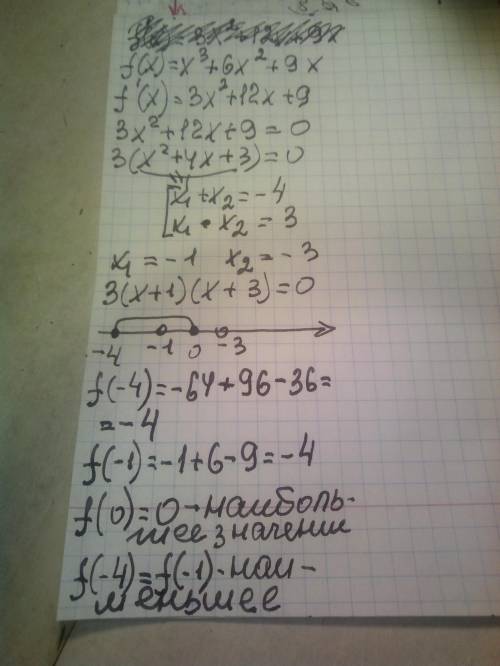 f(x)=x³+6x²+9x
f'(x)=3x²+12x+9
3x²+12x+9=0
3(x²+4x+3)=0
x₁+x₂=-4
x₁•x₂=3
x₁=-1 x₂=-3
3(x+1)(x+3)=0
-4 -1 0 -3
f(-4)=-64+96-36=
=-4
f(-1)=-1+6-9=-4
f(0)=0-наиболь-
шее значение
f(-4)=f(-1)-наи-
меньшее